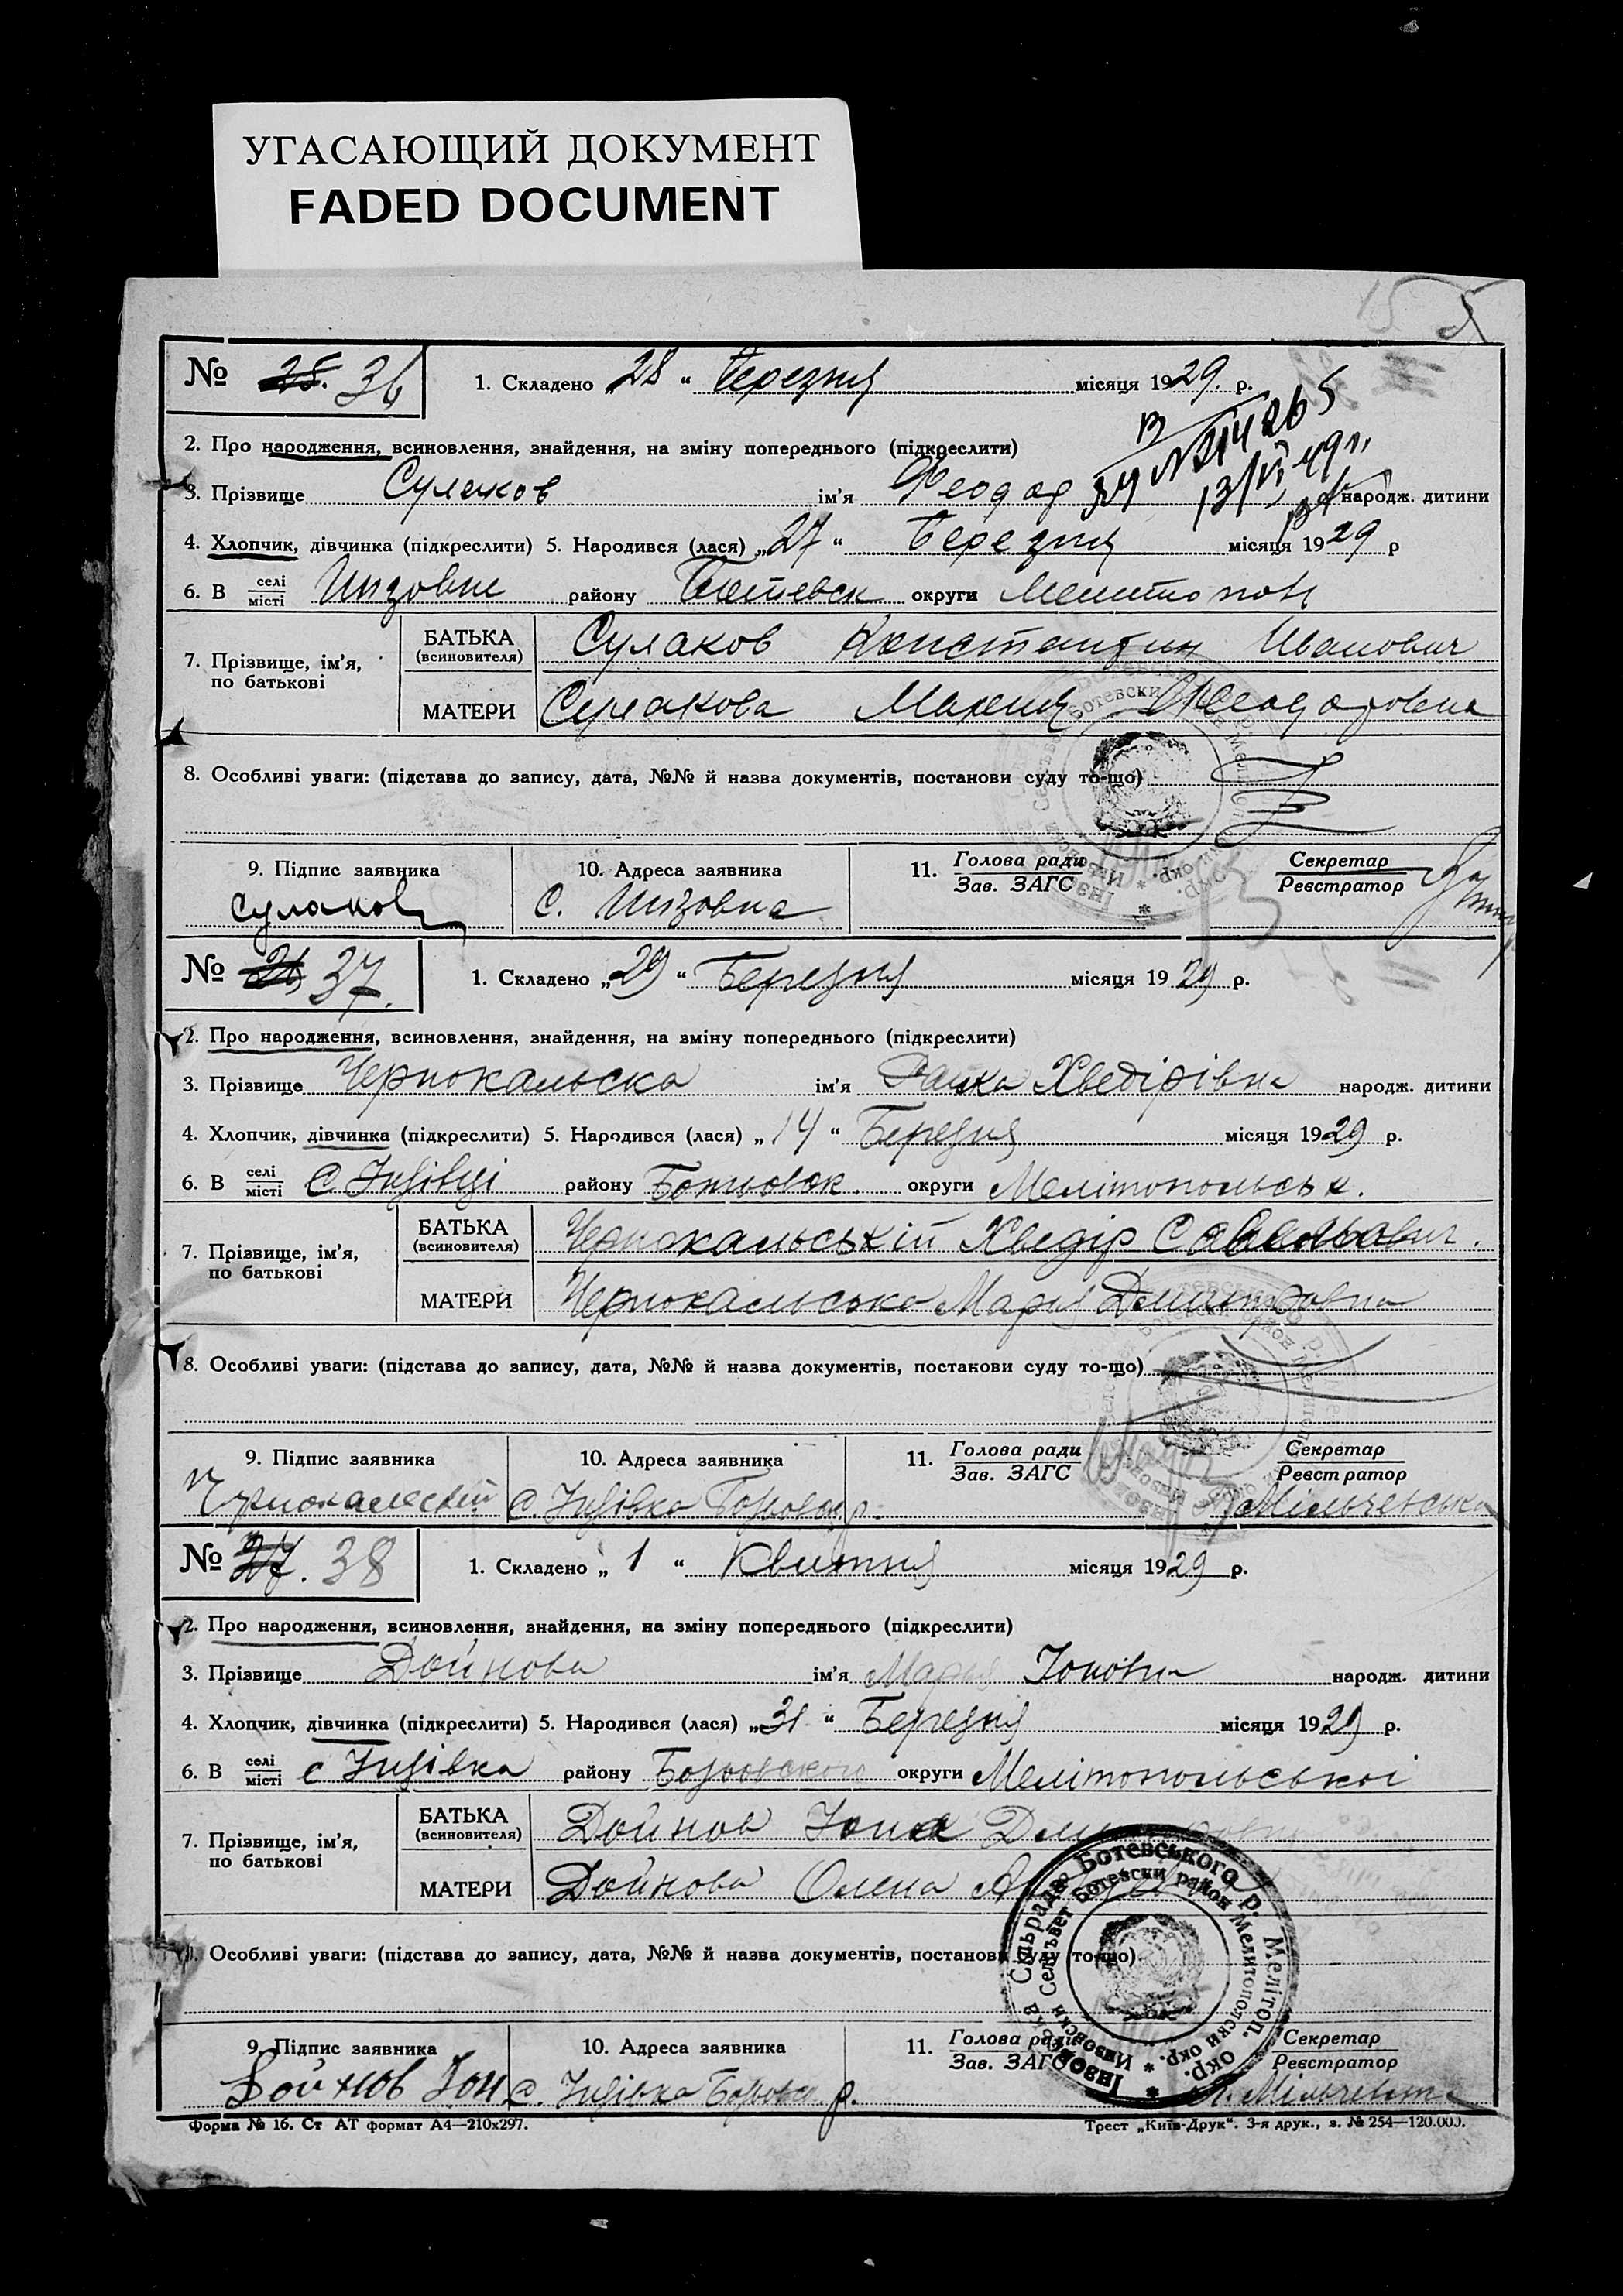 УГАСАЮЩИЙ ДОКУМЕНТ
FADED DOCUMENT
15
№ 25. 36
1. Складено „28“ Березня місяця 1929. р.
2. Про народження, всиновлення, знайдення, на зміну попереднього (підкреслити)
3. Прізвище Сулаков ім'я Феодор народж. дитини
4. Хлопчик, дівчинка (підкреслити) 5. Народився (лася) „27“ Березня місяця 1929 р
6. В селі місті Инзовке району Ботевск округи Мелитопол
7. Прізвище, ім'я, по батькові
БАТЬКА (всиновителя) Сулаков Константин Иванович
МАТЕРИ Сулакова Феодоровна
8. Особливі уваги: (підстава до запису, дата, №№ й назва документів, постанови суду то-що)
9. Підпис заявника
Сулаков
10. Адреса заявника
С. Инзовка
11. Голова ради Зав. ЗАГС
Секретар Реєстратор
№ 26 37.
1. Складено „29“ Березня місяця 1929 р.
2. Про народження, всиновлення, знайдення, на зміну попереднього (підкреслити)
3. Прізвище Чернокальска ім'я Хведірівна народж. дитини
4. Хлопчик, дівчинка (підкреслити) 5. Народився (лася) „14“ Березня місяця 1929 р.
6. В селі місті С Інзівці району округи Мелітопольськ.
7. Прізвище, ім'я, по батькові
БАТЬКА (всиновителя) Чернокальській Хведір Савельович.
МАТЕРИ Чернокальська Мария Дмитровна
8. Особливі уваги: (підстава до запису, дата, №№ й назва документів, постанови суду то-що)
9. Підпис заявника
Чернокальский
10. Адреса заявника
С. Інзівка р.
11. Голова ради Зав. ЗАГС
Секретар Реєстратор
№ 27. 38
1. Складено „1“ Квитня місяця 1929 р.
2. Про народження, всиновлення, знайдення, на зміну попереднього (підкреслити)
3. Прізвище Дойнова ім'я Мария Іоновна народж. дитини
4. Хлопчик, дівчинка (підкреслити) 5. Народився (лася) „31“ Березня місяця 1929 р.
6. В селі місті с Інзівка району округи Мелітопольської
7. Прізвище, ім'я, по батькові
БАТЬКА (всиновителя) Дойнов Іона
МАТЕРИ Дойнова Олена
8. Особливі уваги: (підстава до запису, дата, №№ й назва документів, постанови суду то-що)
Сільрада Ботевського р. Мелітоп. окр.
Селсъвет Ботевски район Мелитополски окр. * Инзовски
9. Підпис заявника
Дойнов Іон
10. Адреса заявника
С. Інзівка р.
11. Голова ради Зав. ЗАГС
Секретар Реєстратор
Форма № 16. Ст АТ формат А4—210x297.
Трест „Київ-Друк“. 3-я друк., з. № 254—120.000.